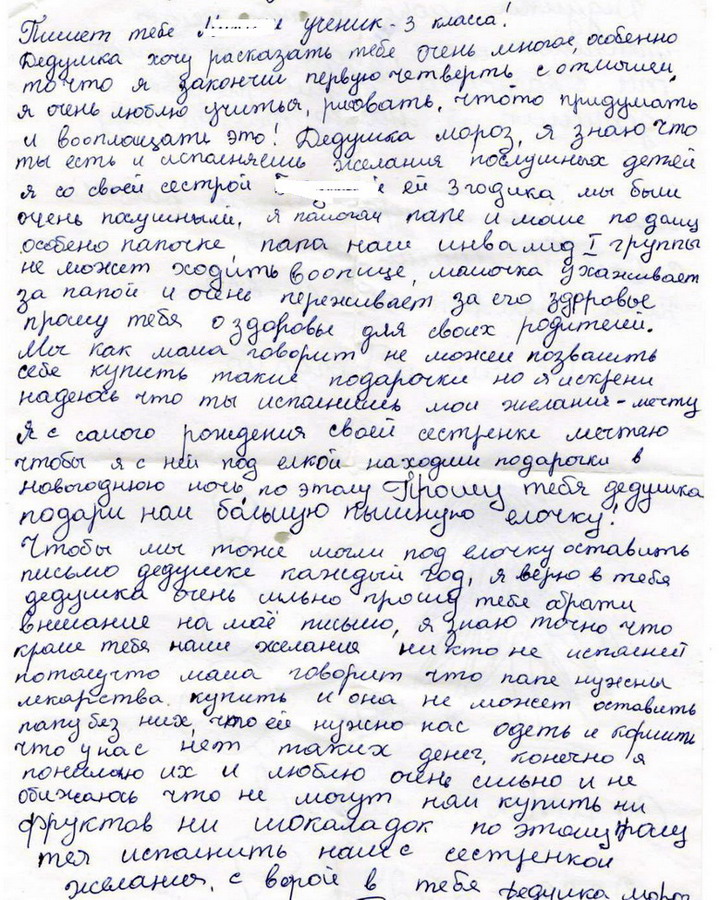 Пишет тебе М е ученик - 3 класса!
Дедушка хочу рассказать тебе очень многое, особенно
то что я закончил первую четверть с отличием,
я очень люблю учиться, рисовать, что то придумать
и вооплощать это! Дедушка мороз, я знаю что
ты есть и исполняешь желания послушных детей
я со своей сестрой е ей 3 годика мы были
очень паслушными, я помогаю папе и маме по дому
особено папочке, папа наш инвалид I группы
не может ходить воопще, мамочка ухаживает
за папой и очень переживает за его здоровье
прошу тебя о здоровье для своих родителей.
Мы как мама говорит не можем позволить
себе купить такие подарочки но я искрени
надеюсь что ты исполнишь мои желания - мечту
Я с самого рождения своей сестренки мечтаю
чтобы я с ней под елкой находили подарочки в
новогоднюю ночь, по этому Прошу тебя дедушка
подари нам большую пышную елочку!
Чтобы мы тоже могли под елочку оставить
письмо дедушке каждый год, я верю в тебя
дедушка очень сильно прошу тебе обрати
внимание на моё письмо, я знаю точно что
кроме тебя наши желания ни кто не исполнит
потому что мама говорит что папе нужны
лекарства купить и она не может оставить
папу без них, что ей нужно нас одеть и кормить
что у нас нет таких денег, конечно я
понимаю их и люблю очень сильно и не
обижаюсь что не могут нам купить ни
фруктов ни шокаладок по этому прошу
тея исполнить наши с сестренкой
желания, с верой в тебя дедушка мороз